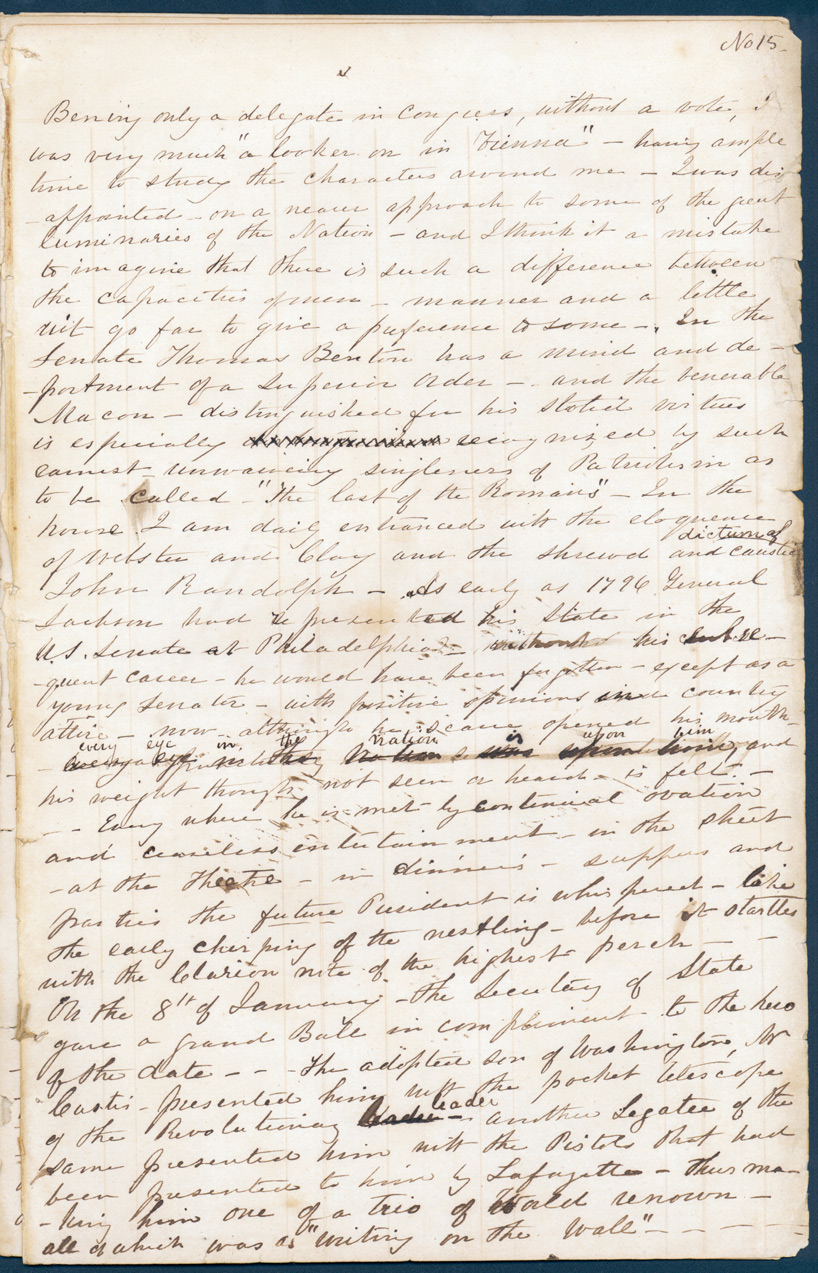 No 15.
Bening only a delegate in Congress, without a vote, I
was very much "a looker on in Vienna" - having ample
time to study the characters around me - I was dis
-appointed - on a nearer approach to some of the great
luminaries of the Nation - and I think it a mistake
to imagine that there is such a difference between
the capacities of men - manner and a little
wit go far to give a preference to some -. In the
Senate Thomas Benton has a mind and de-
-portment of a Superior Order -. and the venerable
Macon - distinguished for his stoical virtues
is especially recognized by such
earnest unwavering singleness of Patriotism as
to be called - "The last of the Romans" - In the
house I am daily entranced with the eloquence
of Webster and Clay and the shrewd and caustic
dictum of
John Randolph - As early as 1796 General
Jackson had represented his State in the
U.S. Senate at Philadelphia - without his subse-
-quent career - he would have been forgotten - except as a
young Senator - with positive opinions and country
attire - now - although he scarce opened his mouth
every eye in the nation is upon him
and
his weight though not seen or heard - is felt. -
- - Every where he is met by continual ovation
and ceaseless entertainment - in the street
- at the Theatre - in dinners - suppers and
parties the future President is whispered - like
the early chirping of the nestling - before it startles
with the Clarion note of the highest perch - -
On the 8th of January - the Secretary of State
gave a grand Ball in compliment to the hero
of the date - - The adopted son of Washington, Mr
Custis - presented him with the pocket telescope
of the Revolutionary leader - another Legatee of the
same presented him with the Pistols that had
been presented to him by Lafayette - thus ma-
-king him one of a trio of World renown -
all of which was as "writing on the wall" - - - -